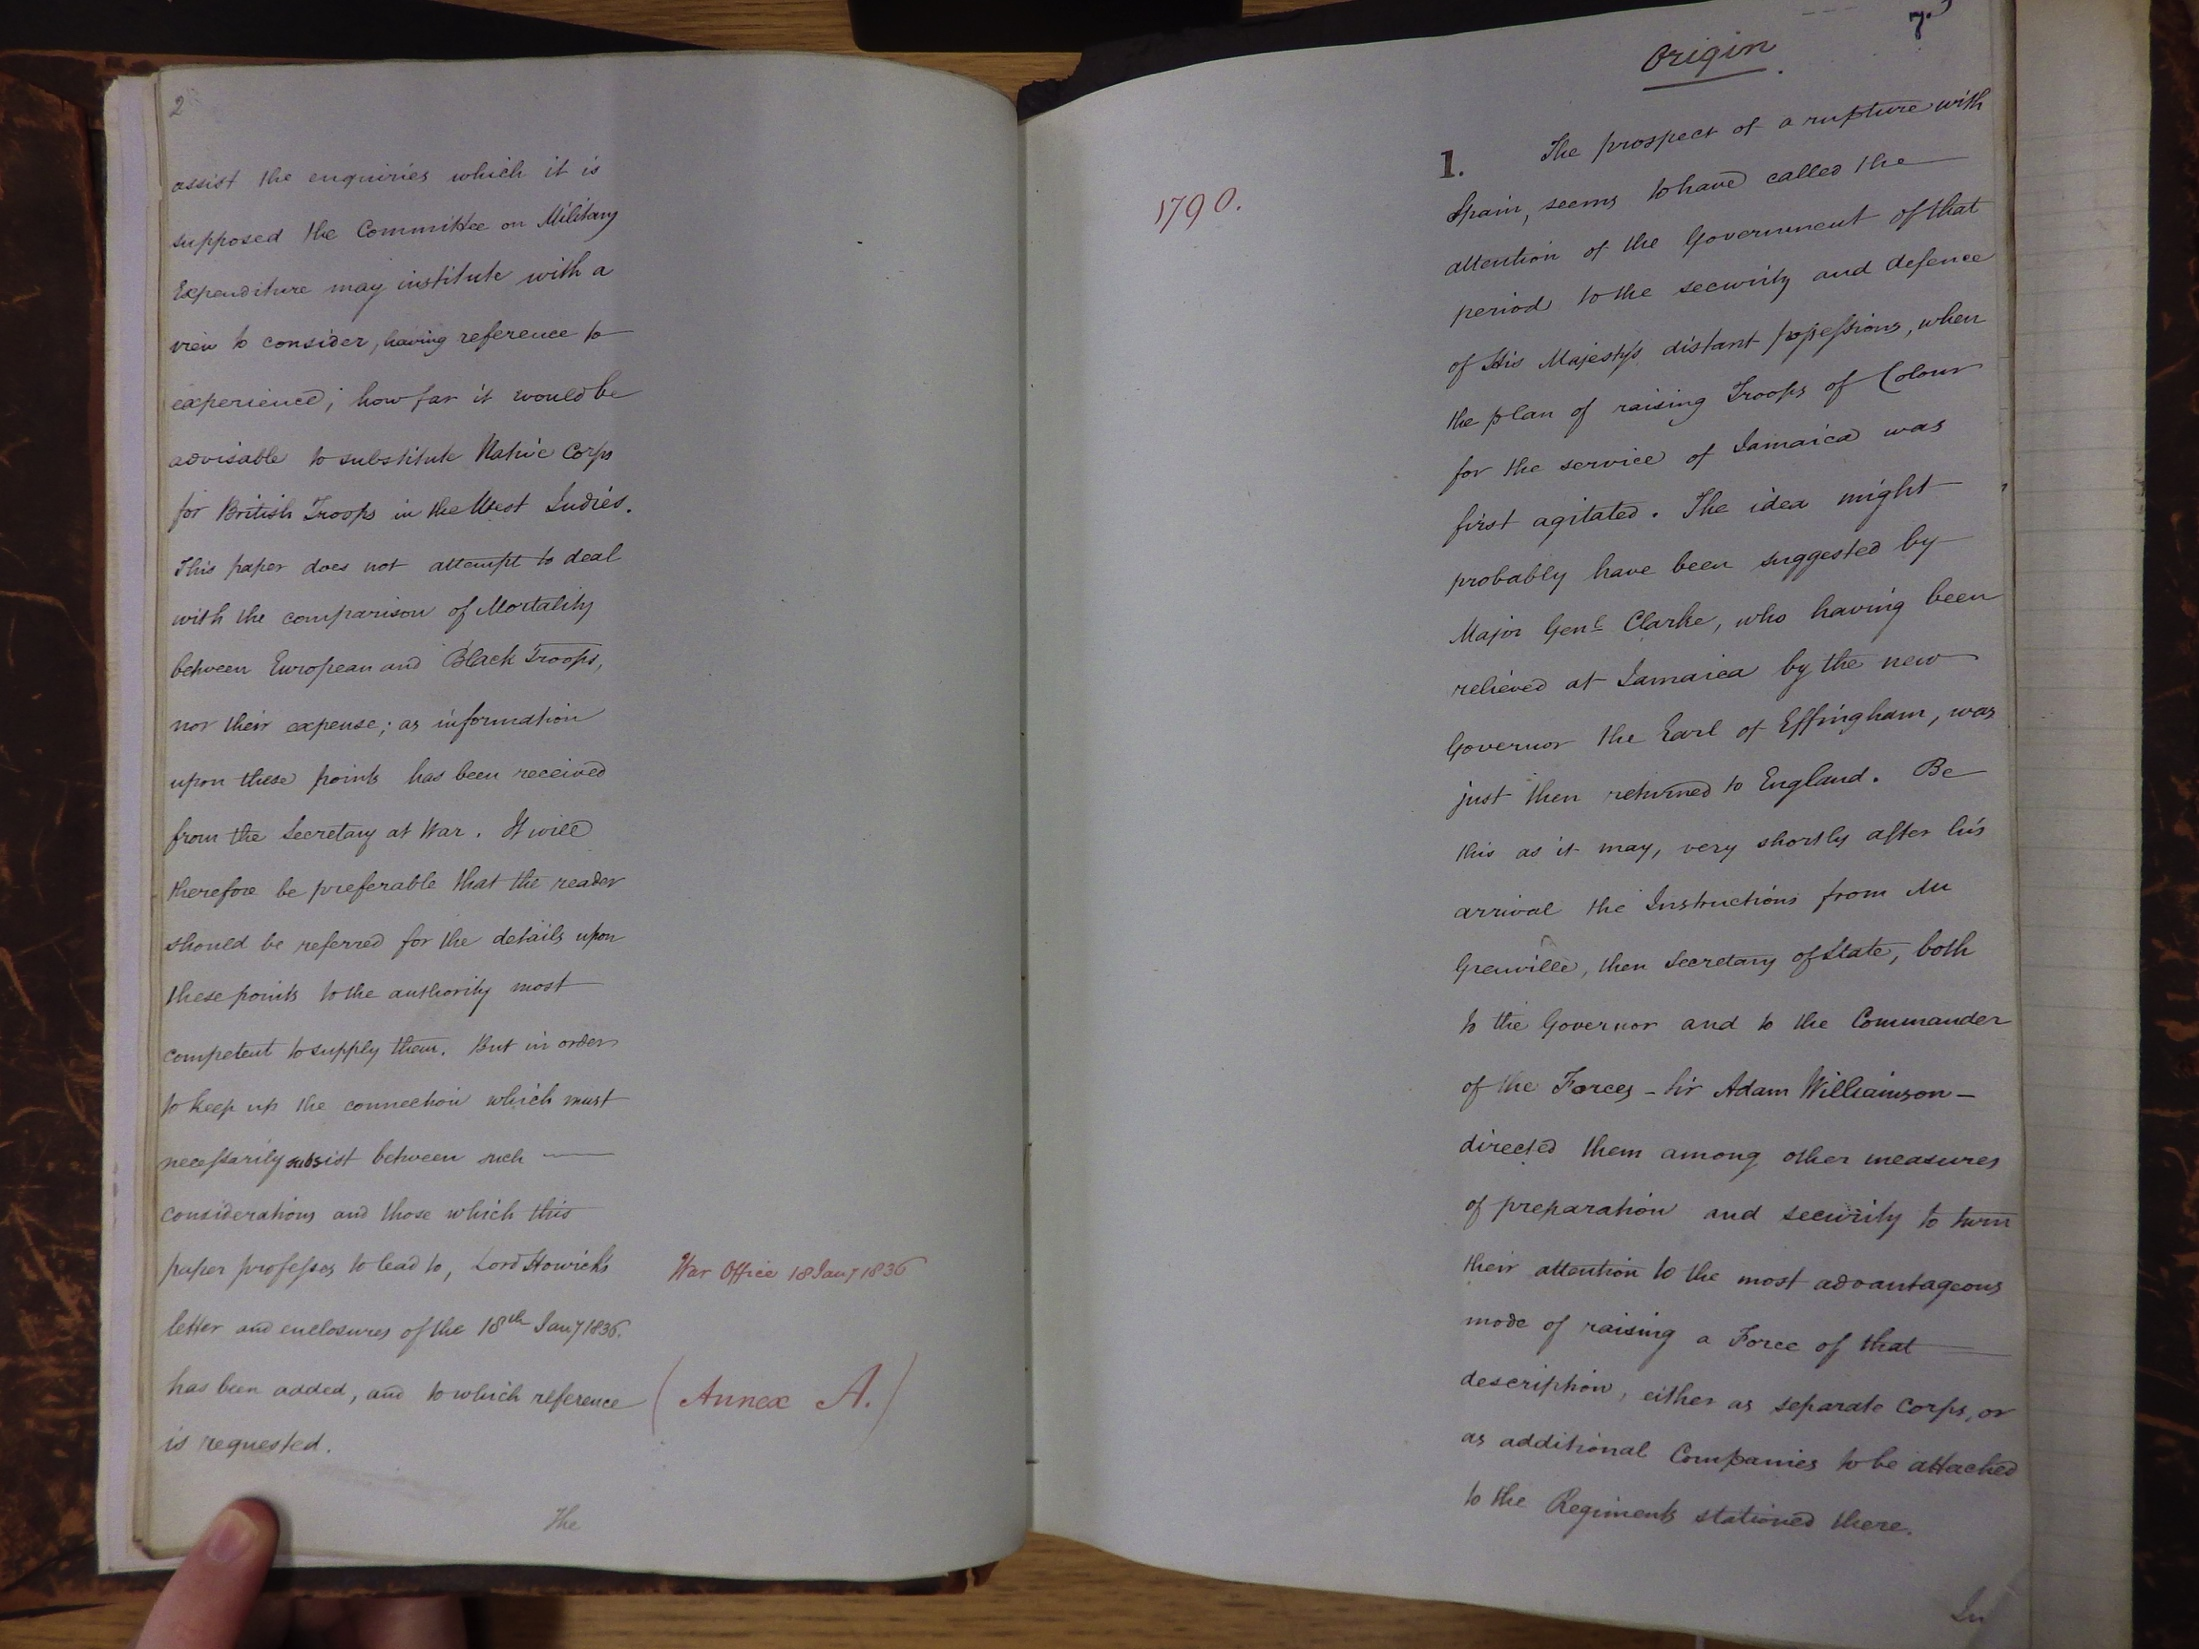 2
assist the enquiries which it is
supposed the Committee on Military
Expenditure may institute with a
view to consider, having reference to
experience; how far it would be
advisable to substitute Native Corps
for British Troops in the West Indies.
This paper does not attempt to deal
with the comparison of Mortality
between European and Black Troops,
nor their expense; as information
upon these points has been received
from the Secretary at War. It will
therefore be preferable that the reader
should be referred for the details upon
these points to the authority most
competent to supply them. But in order
to keep up the connection which must
necessarily subsist between such
considerations and those which this
paper professes to lead to, Lord Howick's
letter and enclosures of the 18th Jany 1836.
has been added, and to which reference
is requested.
War Office 18 Jany 1836
(Annex A.)
The
Origin
1790.
1. The prospect of a rupture with
Spain, seems to have called the
attention of the Government of that
period to the security and defence
of His Majesty's distant possessions, when
the plan of raising Troops of Colour
for the service of Jamaica was
first agitated. The idea might
probably have been suggested by
Major Genl Clarke, who having been
relieved at Jamaica by the new
Governor the Earl of Effingham, was
just then returned to England. Be
this as it may, very shortly after his
arrival the Instructions from Mr
Grenville, then Secretary of State, both
to the Governor and to the Commander
of the Forces - Sir Adam Williamson -
directed them among other measures
of preparation and security to turn
their attention to the most advantageous
mode of raising a Force of that
description, either as separate Corps, or
as additional Companies to be attached
to the Regiments stationed there.
In